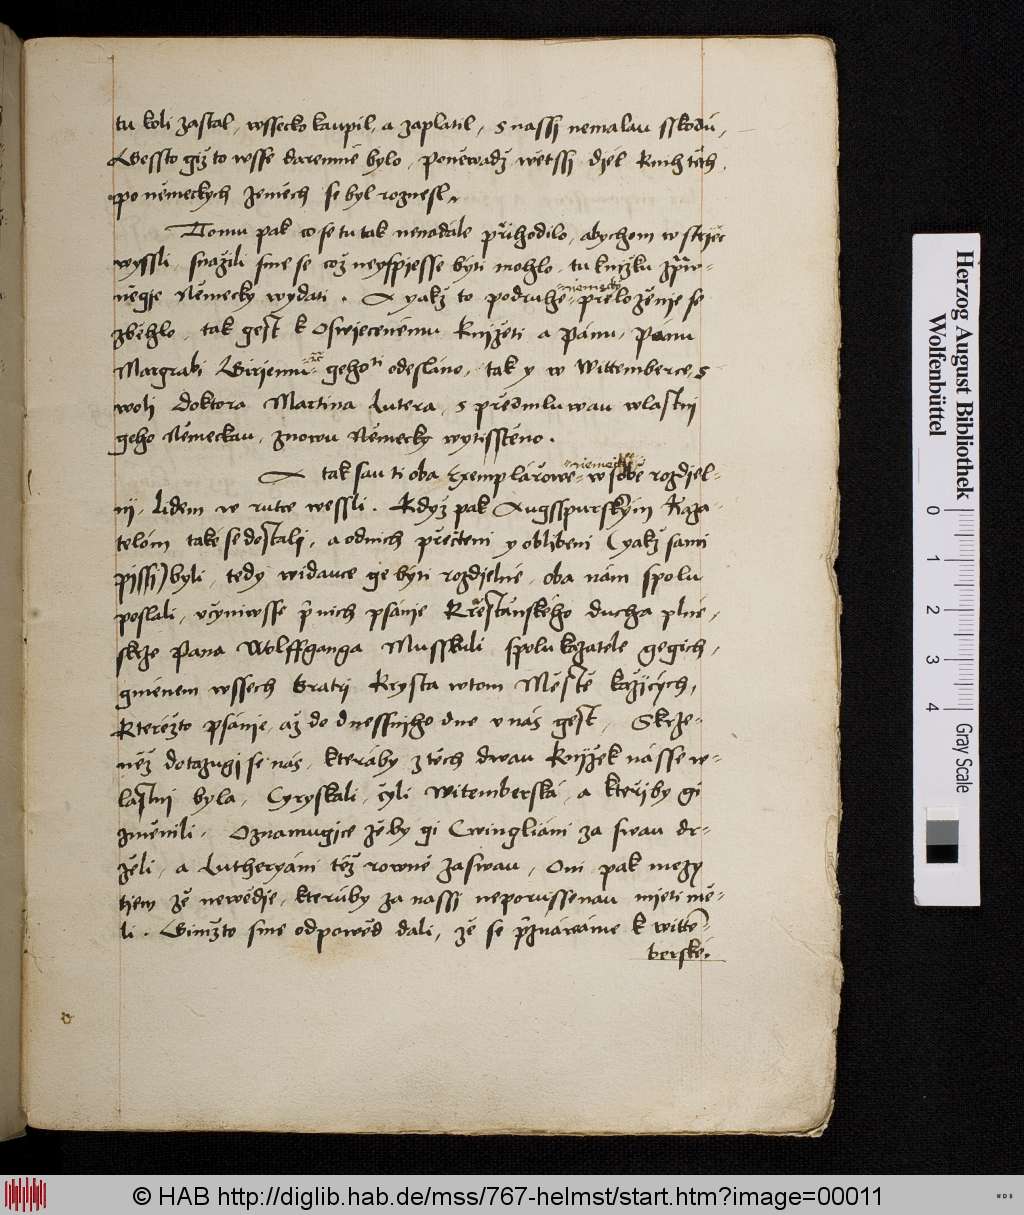 tu koli zastal, wssecko kaupil, a zaplatil, s nassj nemalau sskodu,
Gessto giž to wsse daremné bylo, poněwadž wětssj djel Knih těch
po německych zemech se byl roznesl.
Tomu pak co se tu tak nenadále přihodilo, abychom wstřjc
wyssli, snažili sme se což neyspjesse býti mohlo, tu knižku zpraw-
něgie Německy wydati. A yakž to podruhé německé přeloženje se
zběhlo, tak gest k Oswjecenému Knjžeti a Pánu, Panu
Margrabi Girjemu etc gehoti odeslano, tak y w Wittemberce, s
wolj Doktora Martina Lutera, s předmluwau wlastnj
geho Německau, znowu Německy wytisstěno.
A tak sau ti oba Exempláŕowé německé w sobě rozdjel-
nj, lidem w ruce wessli. Když pak Augsspurským Kaza-
telóm také se dostali, a od nich přečteni y oblibeni (yakž sami
pjssj) byli, tedy widauce ge býti rozdjelné, oba nám spolu
poslali, včyniwsse při nich psánje Křestianského ducha plné,
skrze Pana Wolffganga Musskuli spolu kazatele gegich,
gménem wssech Bratrj Krysta w tom Městě kážjcých,
Kteréžto psánje, až do dnessnjho dne v nás gest, Skrze-
něž dotazugj se nás, kteráby z těch dwau Knjžek násse w-
lastnj byla, Cyryskali, čyli Witemberská, a kteřiby gi
změnili, Oznamugjce žeby gi Cwingliáni za swau dr-
želi, a Lutheryáni též rowně za swau, Oni pak mezy
tjem že newědje, kterúby za nassj neporussenau mjeti mě-
li. Gimžto sme odpowěd dali, že se přiznáwáme k witte-
berské.
Herzog August Bibliothek
Wolfenbüttel
0 1 2 3 4 Gray Scale
© HAB http://diglib.hab.de/mss/767-helmst/start.htm?image=00011
WDB